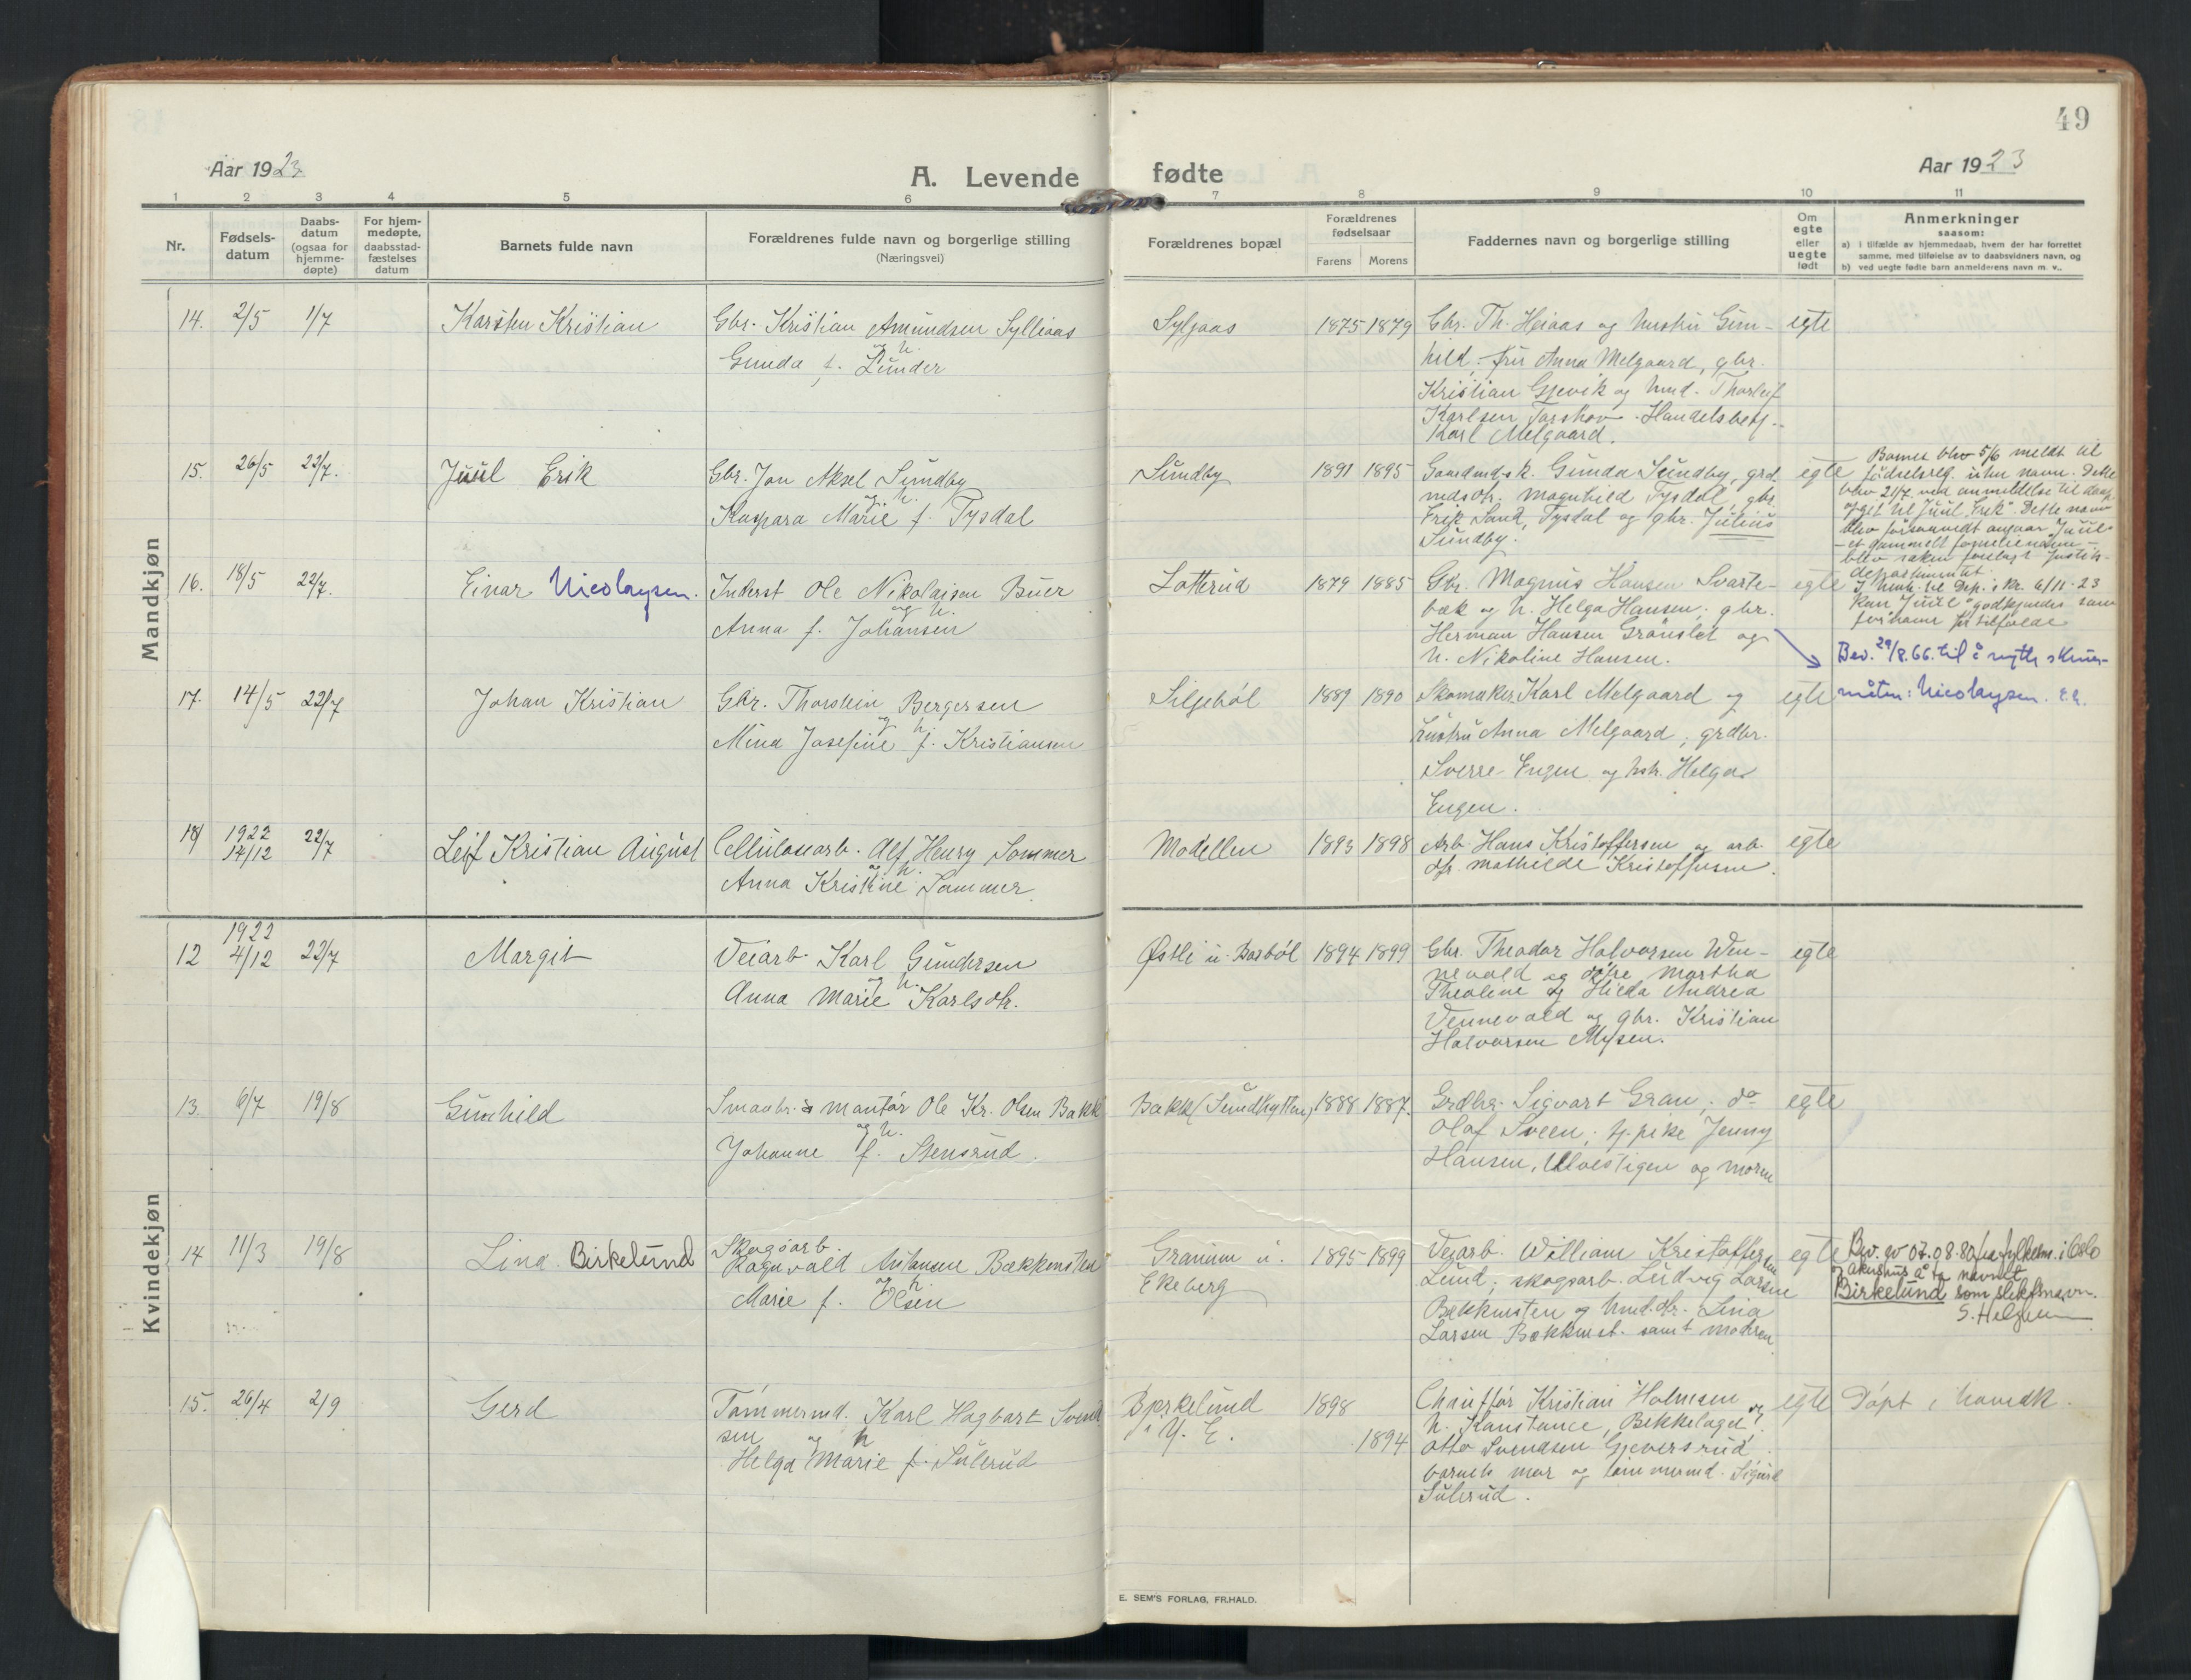 49
Aar 1923
A. Levende fødte
Aar 1923
1 2 3 4 5 6 7 8 9 10 11
Nr.
Fødsels-
datum
Daabs-
datum
(ogsaa for
hjemme-
døpte)
For hjem-
medøpte,
daabsstad-
fæstelses
datum
Barnets fulde navn
Forældrenes fulde navn og borgerlige stilling
(Næringsvei)
Forældrenes bopæl
Forældrenes
fødselsaar
Farens Morens
Faddernes navn og borgerlige stilling
Om
egte
eller
uegte
født
Anmerkninger
saasom:
a) i tilfælde av hjemmedaab, hvem der har forrettet
samme, med tilføielse av to daabsvidners navn, og
b) ved uegte fødte barn anmelderens navn m. v..
Mandkjøn
14. 2/5 1/7 Karsten Kristian
Gbr. Kristian Amundsen Sylliaas
og h.
Gunda f. Lunder
Syljaas 1875 1879
Gbr. Th. Heiaas og hustru Gun-
hild. Fru Anna Melgaard, gbr.
Kristian Gjevik og hmd. Thorleif
Karlsen Torskov. Handelsbetj.
Karl Melgaard.
egte
15. 26/5 22/7. Juul Erik
Gbr. Jon Aksel Sundby
og h.
Kaspara Marie f. Tysdal
Sundby 1891 1895
Gaardmdsk. Gunda Sundby, grd.
mdsdtr. Magnhild Tysdal, gbr.
Erik Sand, Tysdal og gbr. Julius
Sundby.
egte
Barnet blev 5/6 meldt til
fødselsreg. uten navn. Dette
blev 21/7 ved anmeldelse til daap
opgit til Juul Erik. Dette navn
blev forsaavidt angaar Juul
- et gammelt familienavn -
blev saken forelagt Justis-
departmentet.
I henh. til Dep. skr. 6/11-23
kan "Juul" godkjendes som
fornavn for tilfælde
16. 18/5 22/7. Einar Nicolaysen.
Inderst Ole Nikolaisen Buer
og h.
Anna f. Johansen
Lotterud 1879 1885
Gbr. Magnus Hansen Svarte-
bæk og h. Helga Hansen; gbr.
Herman Hansen Grønslet og
h. Nikoline Hansen.
egte
Bev. 29/8.66. til å nytte skrive-
måten: Nicolaysen. E.E.
17. 14/5 22/7 Johan Kristian
Gbr. Thorstein Bergersen
og h.
Mina Josefine f. Kristiansen
Siljebøl 1889 1890
Skomaker Karl Melgaard og
hustru Anna Melgaard; grdbr.
Sverre Engen og hstr. Helga
Engen.
egte
18 1922
14/12 22/7 Leif Kristian August
Cellulosearb. Alf Henry Sommer
og h.
Anna Kristine Sommer.
Modellen 1893 1898
Arb. Hans Kristoffersen og arb.
dtr. Mathilde Kristoffersen.
egte
Kvindekjøn
12 1922
4/12 22/7 Margit
Veiarb. Karl Gundersen
og h.
Anna Marie Karlsdtr.
Østli u. Basbøl 1894 1899
Gbr. Theodor Halvorsen Wen-
nevold og døtre Martha
Theoline og Hilda Andrea
Vennevold og gbr. Kristian
Halvorsen Mysen.
egte
13. 6/7 19/8 Gunhild
Smaabr. & montør Ole Kr. Olsen Bakk
og h.
Johanne f. Stensrud.
Bakk (Sundhytten) 1888 1887.
Grdbr. Sigvart Gran; do
Olaf Sveen; tj. pike Jenny
Hansen, Ulvestigen og moren
egte
14 11/3 19/8 Lina Birkelund
Skogsarb.
Ragnvald Antonsen Bækkensten
og h
Marie f. Olsen
Granum u.
Ekeberg
1895 1899
Veiarb. William Kristoffersen
Lund; skogsarb. Ludvig Larsen
Bækkensten og hmd. dtr. Lina
Larsen Bækkenst. samt moderen
egte
Bev. av 07.08.80 fra fylkesm. i Oslo
og Akershus å ta navnet
Birkelund som slektsnavn.
S. Helgesen
15. 26/4 2/9 Gerd
Tømmermd. Karl Hagbart Svend
sen og h
Helga Marie f. Sulerud
Bjerkelund
i Y. E.
1898
1894
Chauffør Kristian Holmsen og
h. Konstance, Bekkelaget;
Otto Svendsen Gjeversrud
barnets mor og tømmermd. Sigurd
Sulerud.
egte Døpt i hovedk.
E. SEM'S FORLAG, FR.HALD.